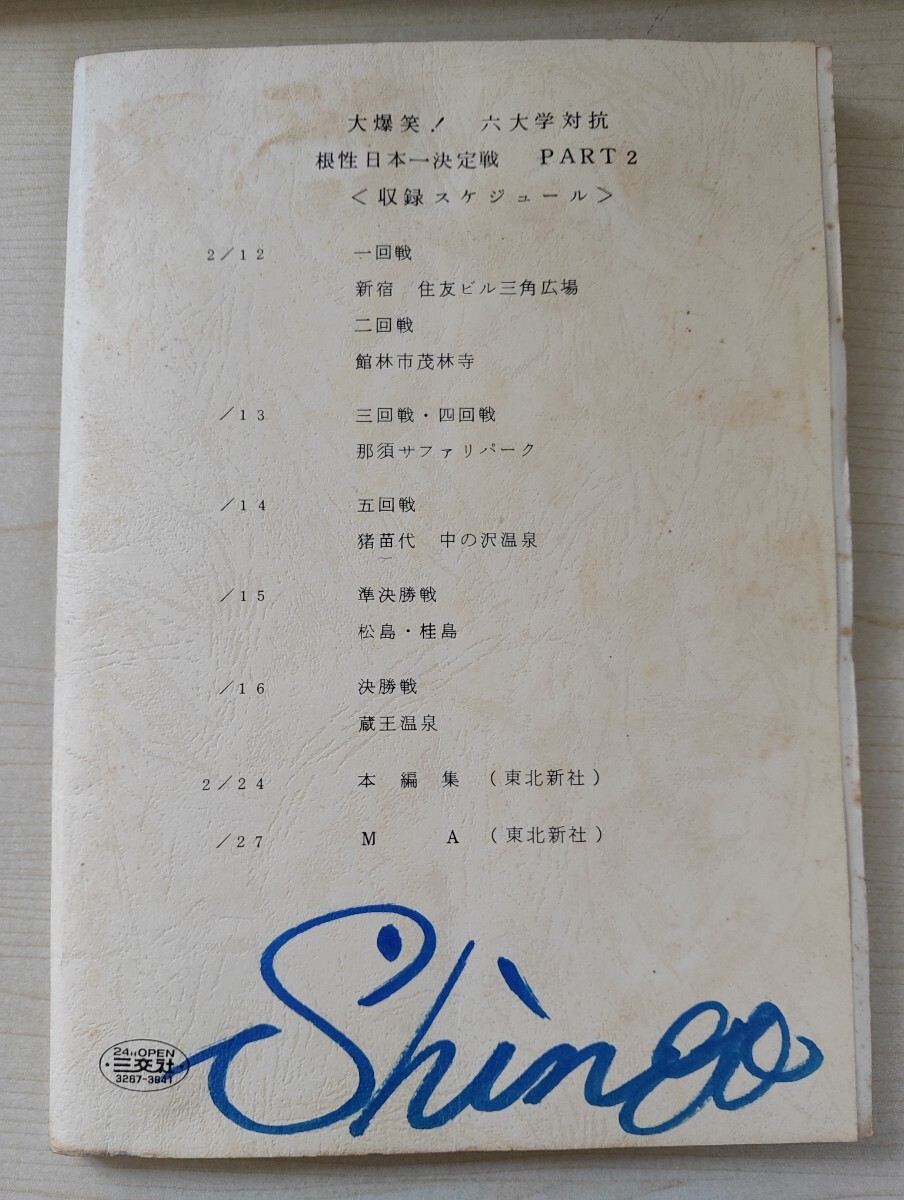 大爆笑！ 六大学対抗
根性日本一決定戦 PART2
＜収録スケジュール＞
2/12 一回戦
新宿 住友ビル三角広場
二回戦
館林市茂林寺
/13 三回戦・四回戦
那須サファリパーク
/14 五回戦
猪苗代 中の沢温泉
/15 準決勝戦
松島・桂島
/16 決勝戦
蔵王温泉
2/24 本編集（東北新社）
/27 MA（東北新社）
Shingo
24H OPEN
三交社
3267-3841